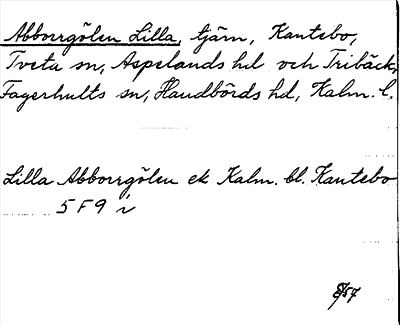 Abborrgölen Lilla, tjärn, Kantebo,
Tveta sn, Aspelands hd och Tribäck,
Fagerhults sn, Handbörds hd, Kalm. l.
Lilla Abborrgölen ek Kalm. bl. Kantebo
5 F 9 i
8/57